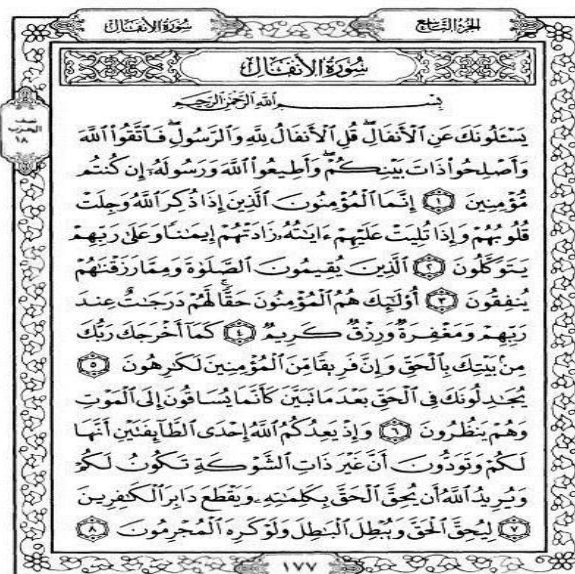 سُورَةُ الأَنفَال
الجُزْءُ التَّاسِع
سُورَةُ الأَنفَال
نصف
الحزب
١٨
بِسْمِ اللَّهِ الرَّحْمَٰنِ الرَّحِيمِ
يَسْـَٔلُونَكَ عَنِ ٱلْأَنفَالِ ۖ قُلِ ٱلْأَنفَالُ لِلَّهِ وَٱلرَّسُولِ ۖ فَٱتَّقُوا۟ ٱللَّهَ
وَأَصْلِحُوا۟ ذَاتَ بَيْنِكُمْ ۖ وَأَطِيعُوا۟ ٱللَّهَ وَرَسُولَهُۥٓ إِن كُنتُم
مُّؤْمِنِينَ ١ إِنَّمَا ٱلْمُؤْمِنُونَ ٱلَّذِينَ إِذَا ذُكِرَ ٱللَّهُ وَجِلَتْ
قُلُوبُهُمْ وَإِذَا تُلِيَتْ عَلَيْهِمْ ءَايَٰتُهُۥ زَادَتْهُمْ إِيمَٰنًا وَعَلَىٰ رَبِّهِمْ
يَتَوَكَّلُونَ ٢ ٱلَّذِينَ يُقِيمُونَ ٱلصَّلَوٰةَ وَمِمَّا رَزَقْنَٰهُمْ
يُنفِقُونَ ٣ أُو۟لَٰٓئِكَ هُمُ ٱلْمُؤْمِنُونَ حَقًّا ۚ لَّهُمْ دَرَجَٰتٌ عِندَ
رَبِّهِمْ وَمَغْفِرَةٌ وَرِزْقٌ كَرِيمٌ ٤ كَمَآ أَخْرَجَكَ رَبُّكَ
مِنۢ بَيْتِكَ بِٱلْحَقِّ وَإِنَّ فَرِيقًا مِّنَ ٱلْمُؤْمِنِينَ لَكَٰرِهُونَ ٥
يُجَٰدِلُونَكَ فِى ٱلْحَقِّ بَعْدَ مَا تَبَيَّنَ كَأَنَّمَا يُسَاقُونَ إِلَى ٱلْمَوْتِ
وَهُمْ يَنظُرُونَ ٦ وَإِذْ يَعِدُكُمُ ٱللَّهُ إِحْدَى ٱلطَّآئِفَتَيْنِ أَنَّهَا
لَكُمْ وَتَوَدُّونَ أَنَّ غَيْرَ ذَاتِ ٱلشَّوْكَةِ تَكُونُ لَكُمْ
وَيُرِيدُ ٱللَّهُ أَن يُحِقَّ ٱلْحَقَّ بِكَلِمَٰتِهِۦ وَيَقْطَعَ دَابِرَ ٱلْكَٰفِرِينَ
٧ لِيُحِقَّ ٱلْحَقَّ وَيُبْطِلَ ٱلْبَٰطِلَ وَلَوْ كَرِهَ ٱلْمُجْرِمُونَ ٨
١٧٧